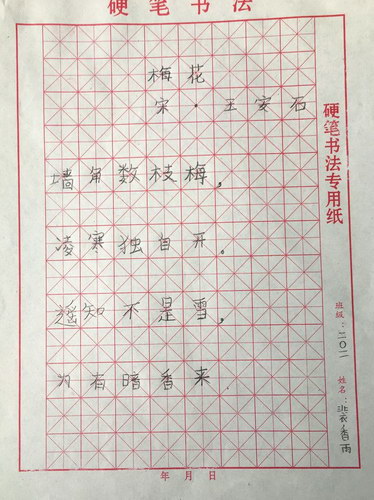 硬笔书法
梅花
宋·王安石
墙角数枝梅，
凌寒独自开。
遥知不是雪，
为有暗香来.
硬笔书法专用纸
班级：二〇二
姓名：裴香雨
年月日